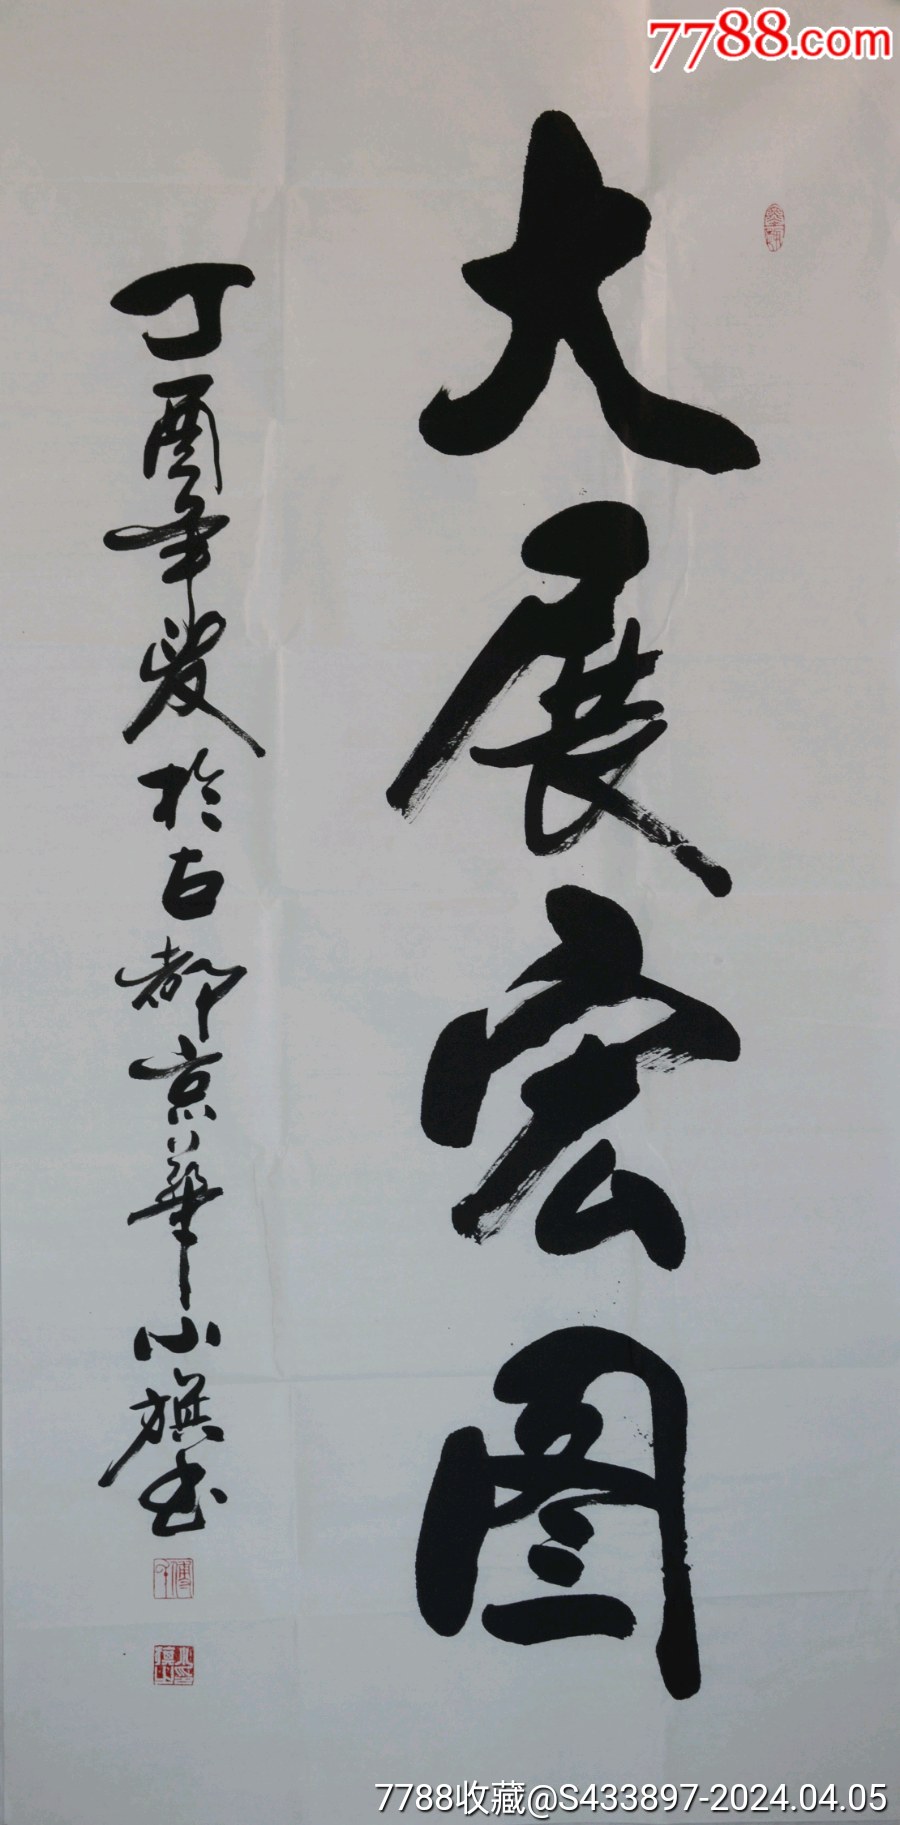 7788.com
大展宏图
丁酉年夏於古都京华小旗书
7788收藏@S433897-2024.04.05